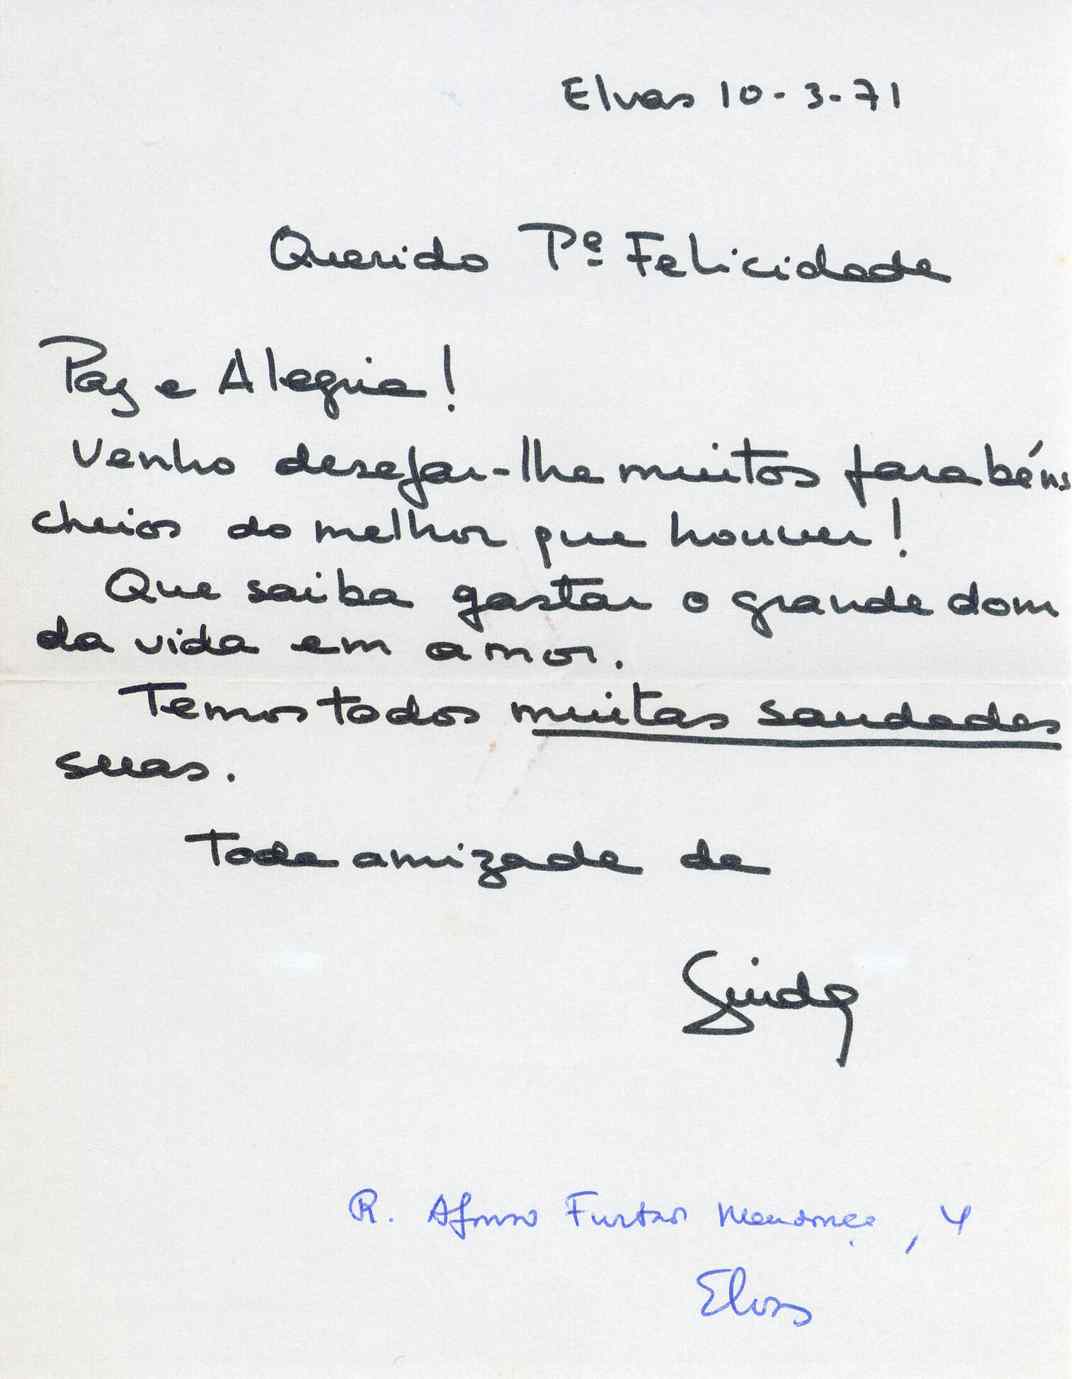 Elvas 10-3-71
Querido Pe. Felicidade
Paz e Alegria!
Venho desejar-lhe muitos parabéns
cheios do melhor que houver!
Que saiba gastar o grande dom
da vida em amor.
Temos todos muitas saudades
suas.
Toda amizade de
Guida
R. Afonso Furtado Mendonça, 4
Elvas